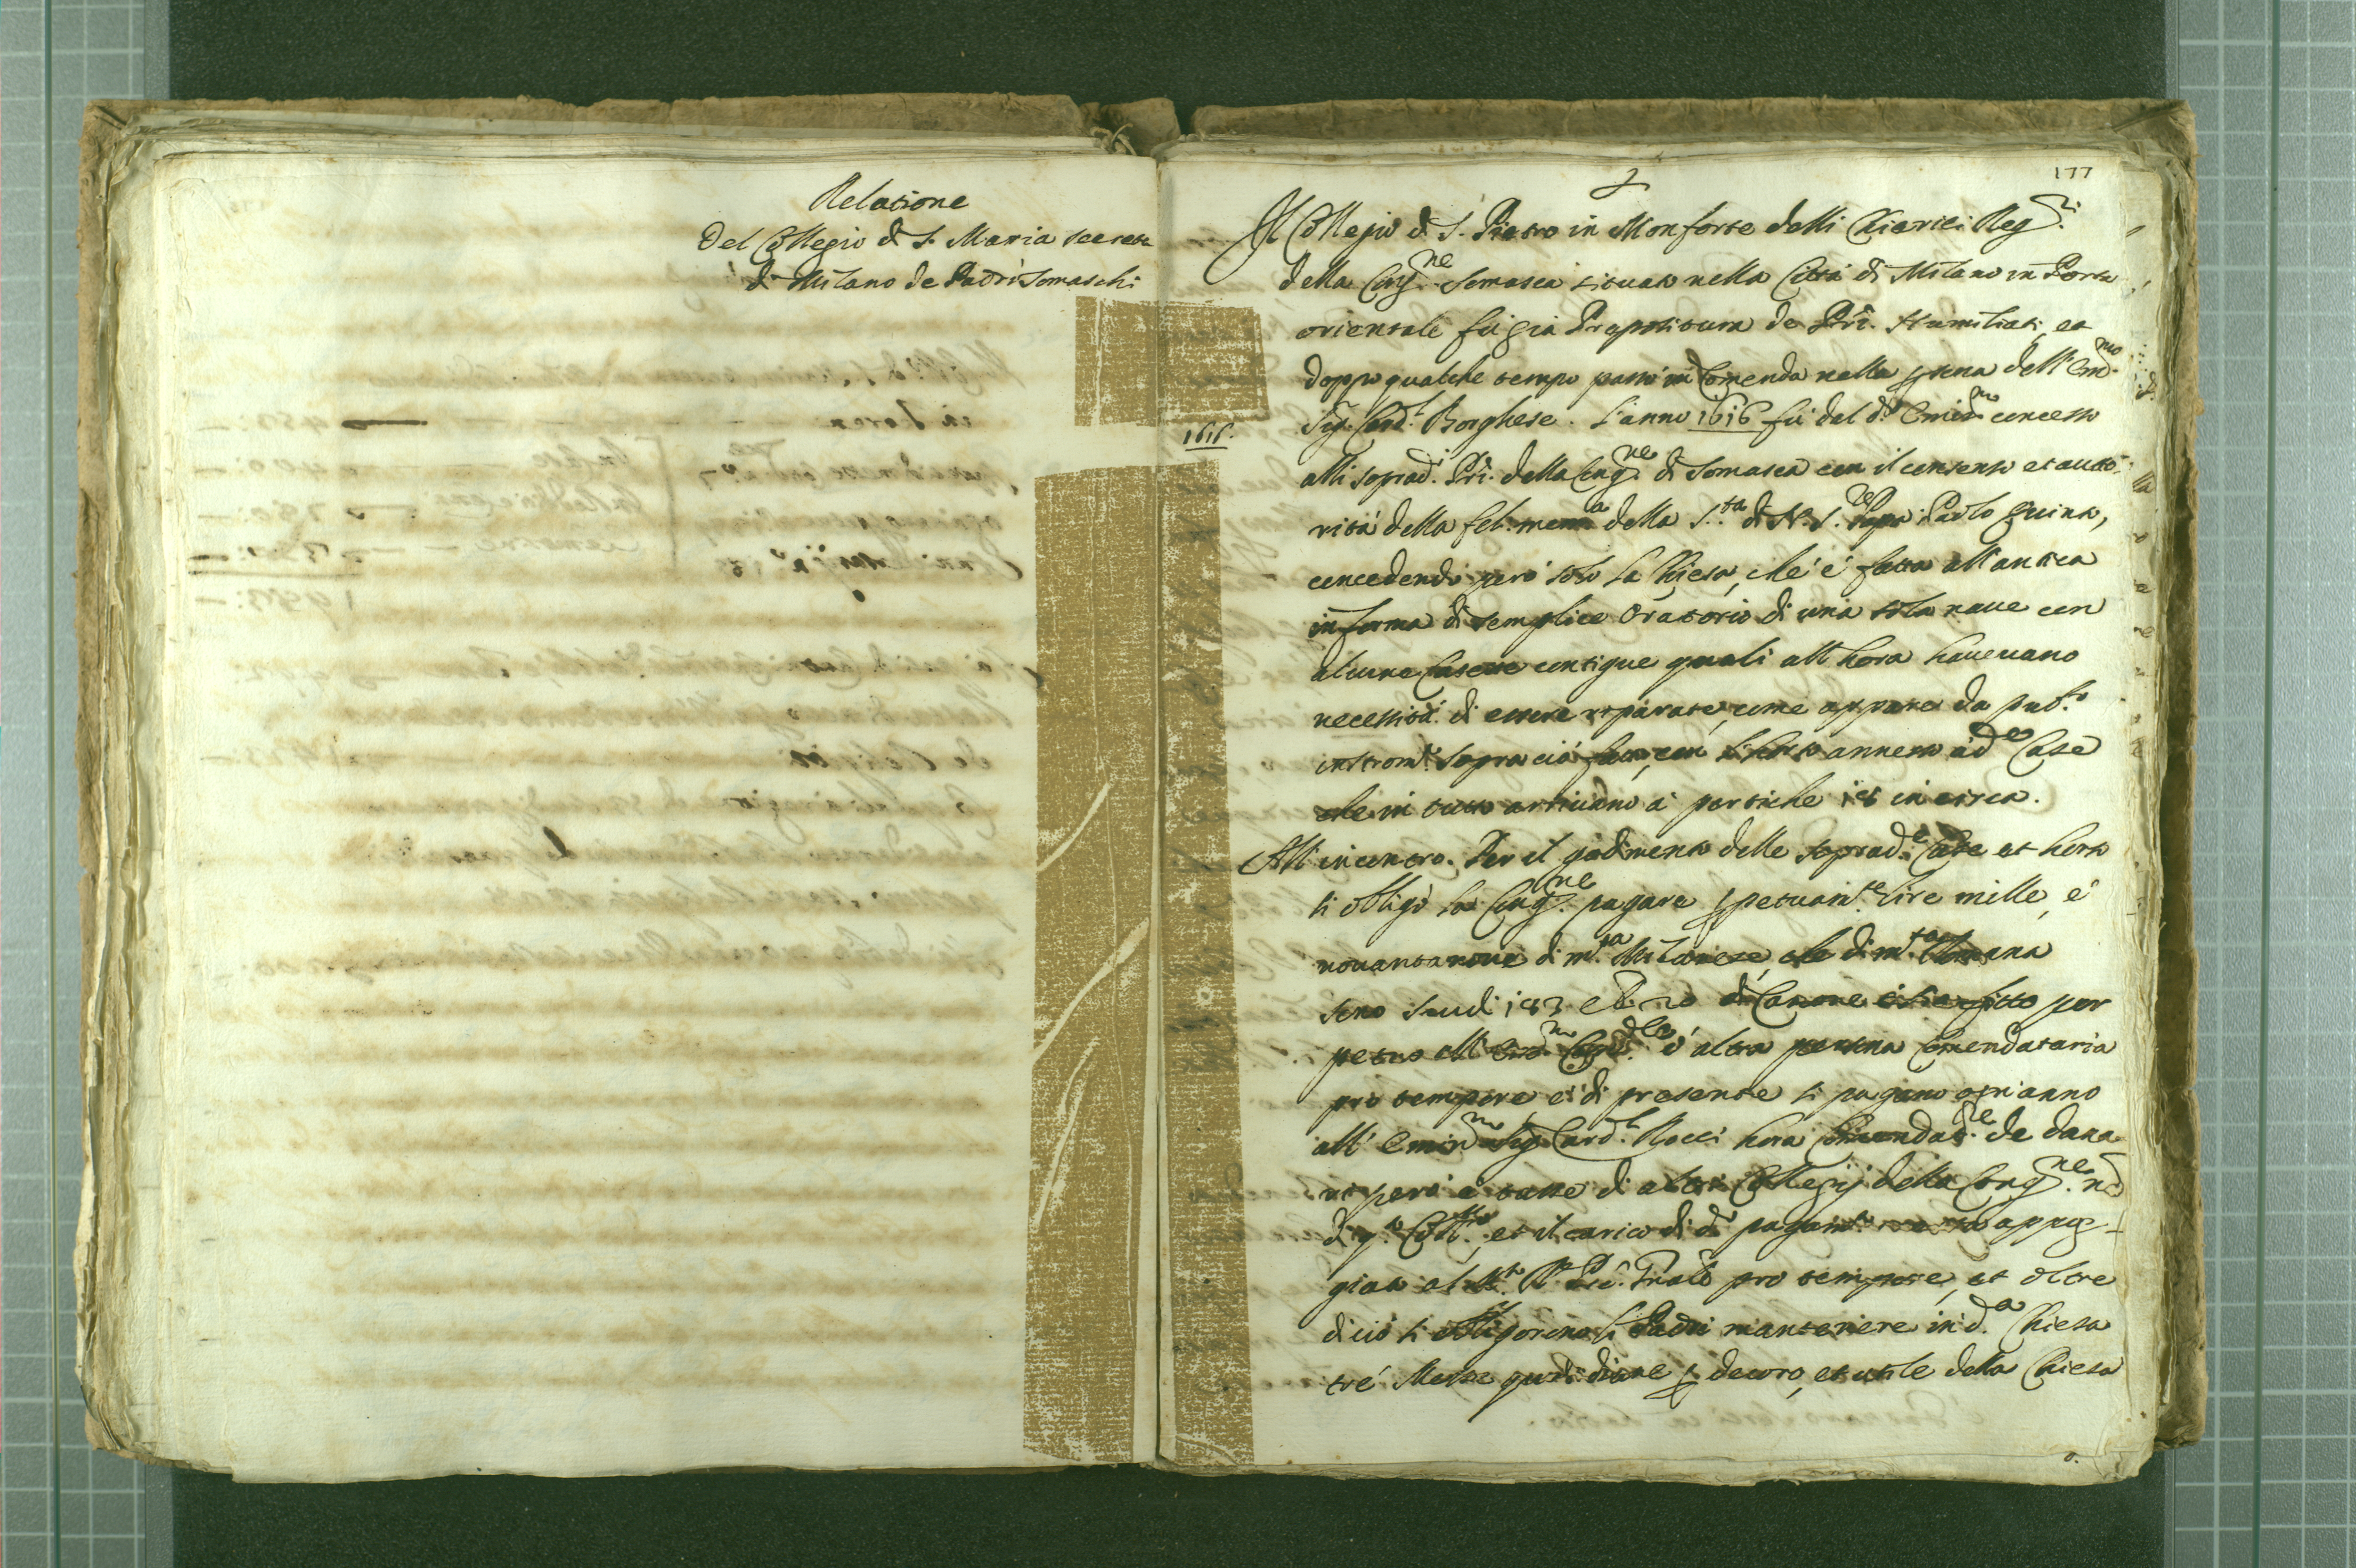 Relatione
Del Collegio di S. Maria secreta
di Milano de Padri Somaschi
177
Il Collegio di S. Pietro in Monforte delli Chierici Reg.ri
della Cong.ne Somasca situato nella Città di Milano in Porta
orientale fù già Prepositura de Pri. Humiliati, et
doppo qualche tempo passò in Comenda nella psona dell' Em.mo
Sig. Card.l Borghese. L'anno 1616 fù dal d.o Emin.mo concesso
1616.
alli soprad.i Pri. della Cong.ne di Somasca con il consenso et auto-
rità della fel. mem.a della S.tà di N. S. Papa Paolo quinto,
concedendo però solo la Chiesa, che è fatta all'antica
in forma di semplice Oratorio di una sola naue con
alcune Casette contigue quali all'hora haueuano
necessità di essere reparate, come appare da pub.co
instrom.to sopra ciò fatto, con annesso à d.e Case
che in tutto arriuano à pertiche in circa.
All'incontro. Per il godimento delle soprad.e Case et horto
si obligò la Cong.ne pagare ppetuam.te lire mille, è
nouantanoue di m.ta Milanese, che di m.ta Romana
sono scudi 183 e 20 di Canone ò sia fitto per
petuo all' Em.mo Card.le ò altra persona Comendataria
pro tempore, et di presente si pagano ogni anno
all' Emin.mo Sig. Card.l Rocci hora Comendat.re de dana-
ri però è tasse di altri Collegij della Cong.ne nò
di q.to Coll.o, et il carico di d.o pagam.to appog-
giato al M.to R. Pre. Prale pro tempore, et oltre
di ciò si obligorono li Padri mantenere in d.a Chiesa
trè Messe quotidiane p decoro, et utile della Chiesa